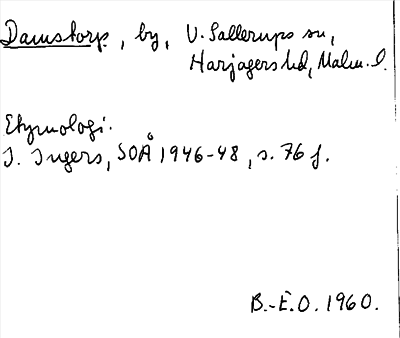 Damstorp, by, V. Sallerups sn,
Harjagers hd, Malm. l.
Etymologi:
I. Ingers, SOÅ 1946-48, s. 76 f.
B.-E.O. 1960.